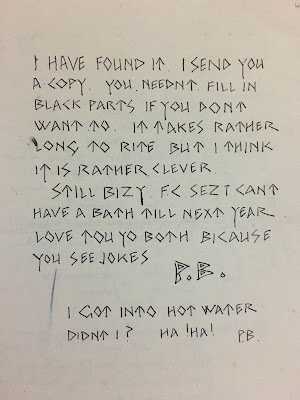 I HAVE FOUND IT. I SEND YOU
A COPY. YOU NEEDNT FILL IN
BLACK PARTS IF YOU DONT
WANT TO. IT TAKES RATHER
LONG TO RITE BUT I THINK
IT IS RATHER CLEVER.
STILL BIZY. FC SEZ I CANT
HAVE A BATH TILL NEXT YEAR
LOVE TOU YO BOTH BICAUSE
YOU SEE JOKES
P.B.
I GOT INTO HOT WATER
DIDNT I? HA! HA!
P.B.